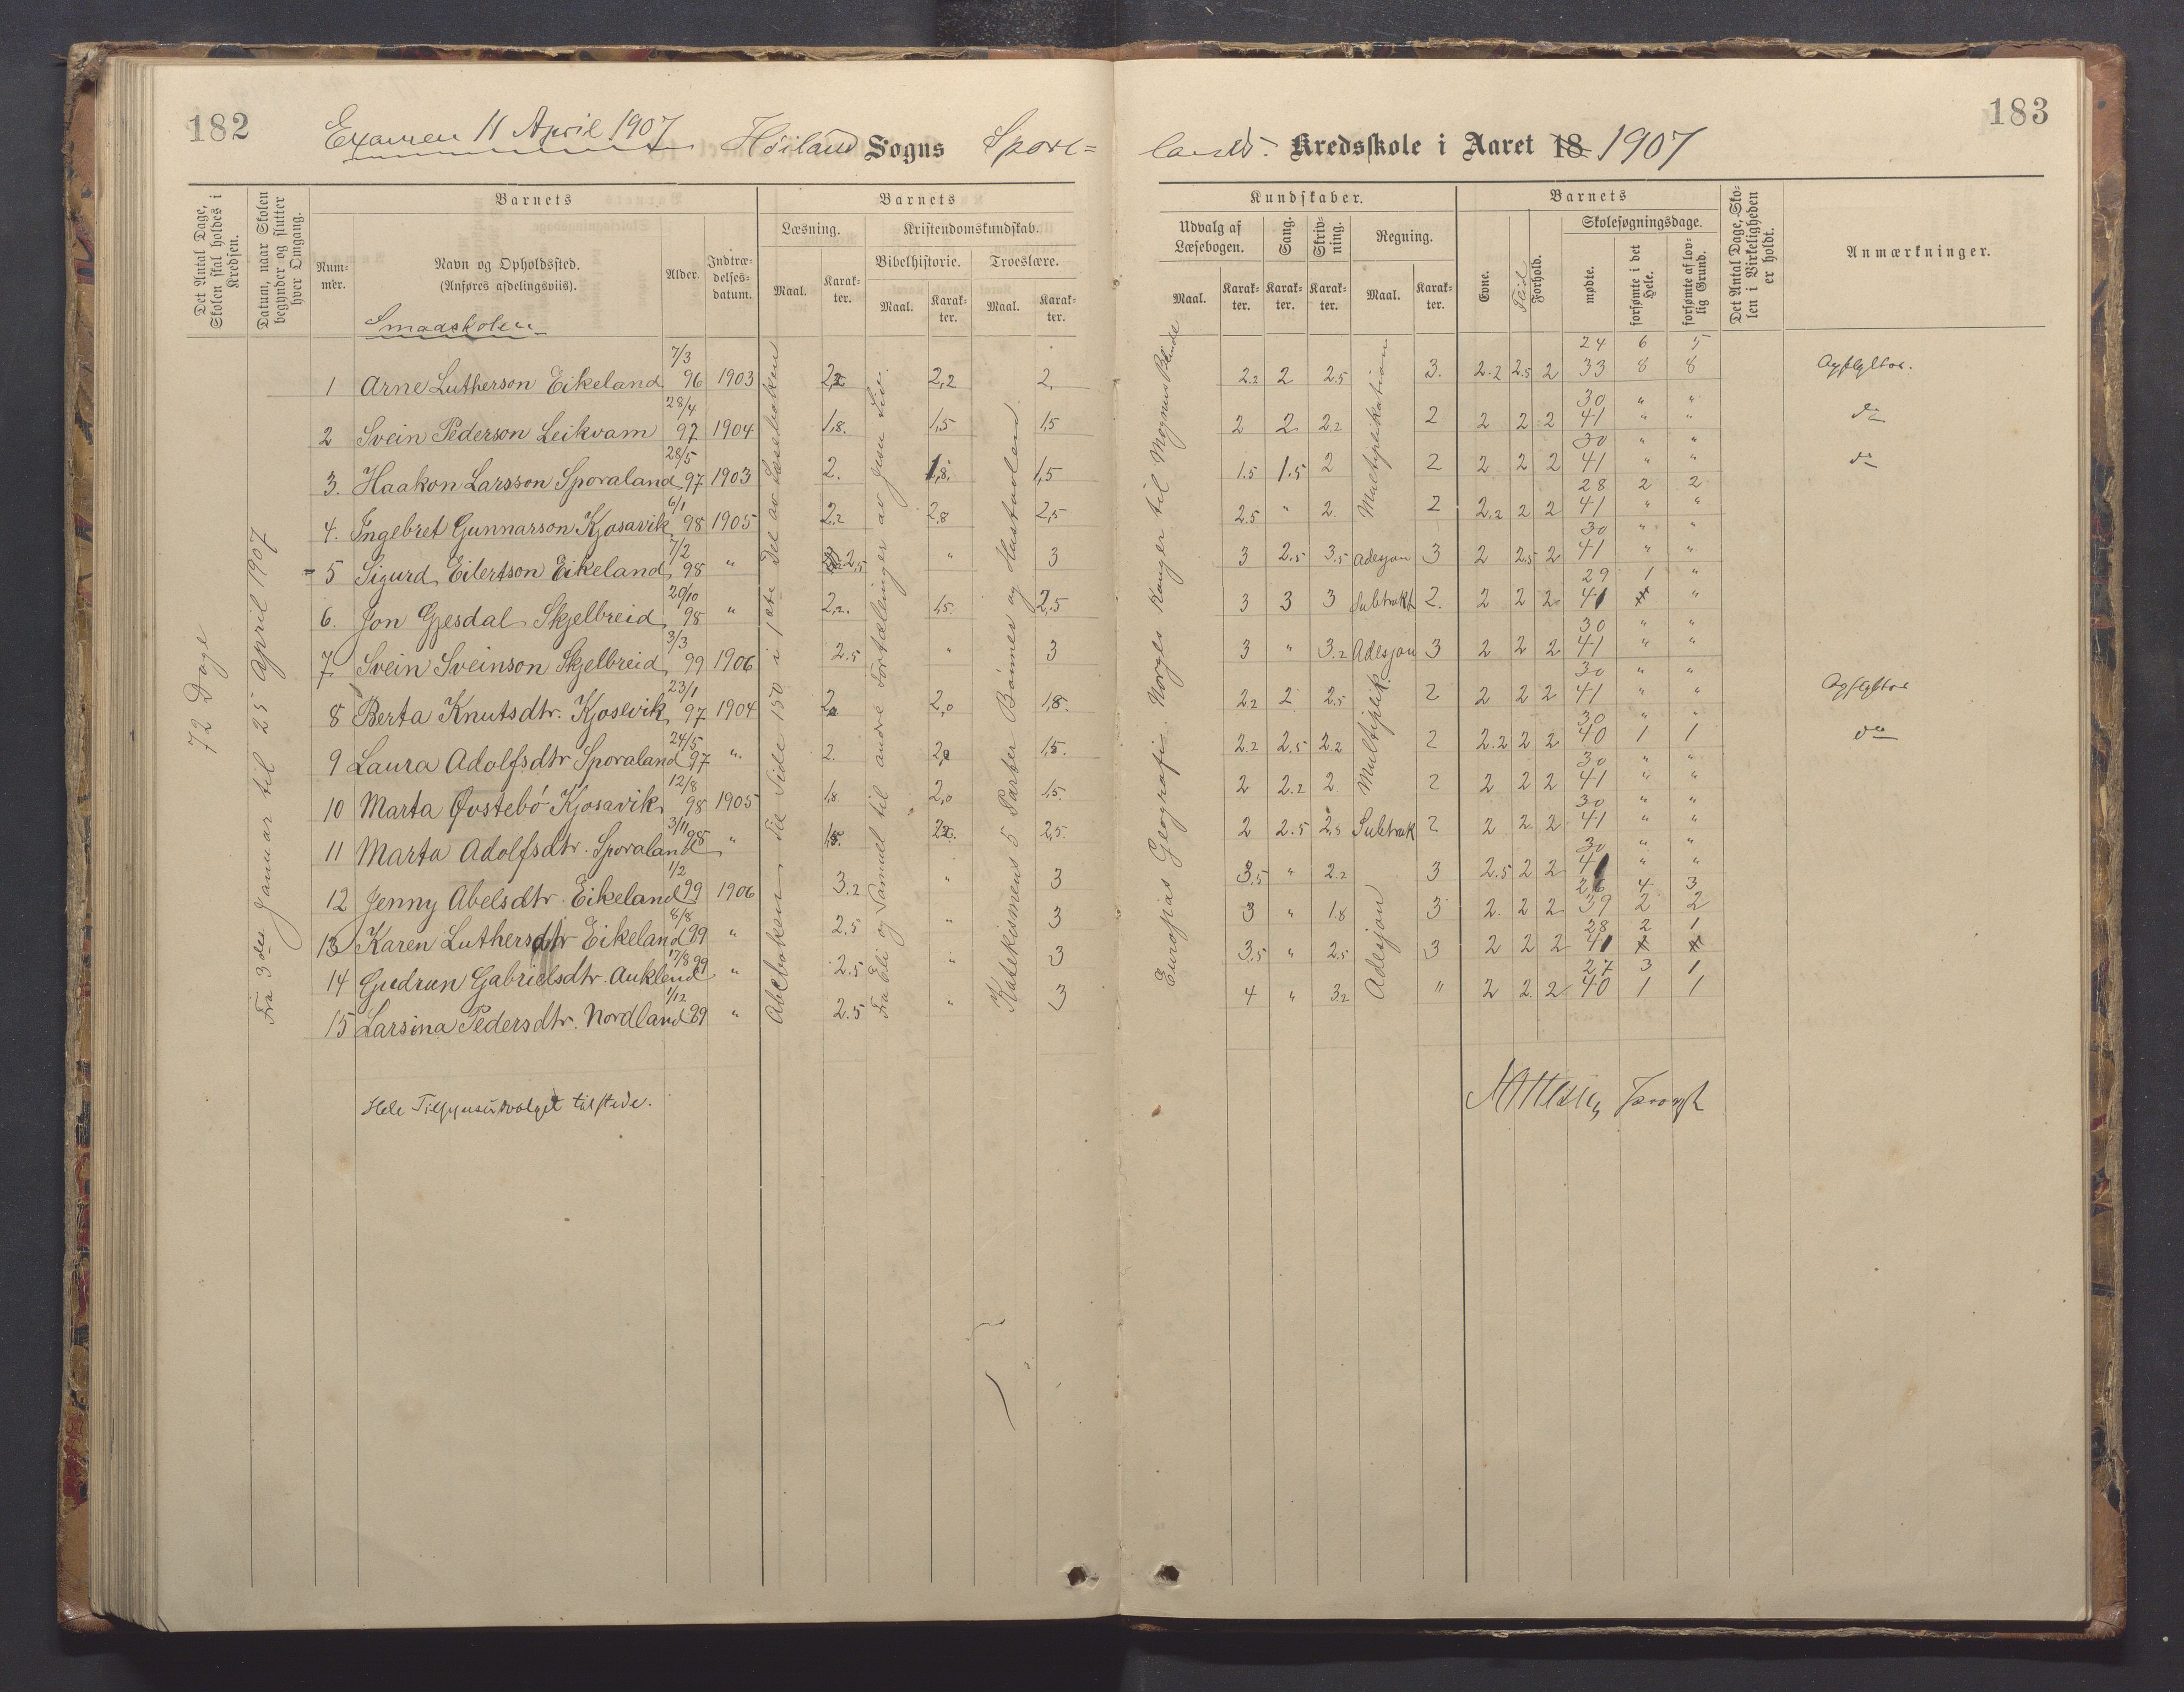 182
Examen 11 April 1907 Höiland Sogns Spore=
Det Antal Dage, Skolen skal holdes i Kredsen.
Datum, naar Skolen begynder og slutter hver Omgang.
Barnets
Nummer.
Navn og Opholdssted.
(Anføres afdelingsviis).
Alder.
Indtrædelsesdatum.
Barnets
Læsning.
Maal.
Karakter.
Kristendomskundskab.
Bibelhistorie.
Maal.
Karakter.
Troeslære.
Maal.
Karakter.
Smaaskolen
72 Dage
Fra 3die Januar til 25 April 1907
Abcboken til Side 150 i 1ste Del av Læseboken
Fra Eli og Samuel til andre Fortællinger av Jesu Liv.
Katekismens 5 Parter Bønner og Hustavlen.
1 Arne Lutherson Eikeland 7/3 96 1903 2,2 2,2 2,
2 Svein Pederson Leikvam 28/4 97 1904 1,8. 1,5 1,5
3. Haakon Larsson Sporaland 28/5 97 1903 2. 1,8. 1,5
4. Ingebret Gunnarson Kjosavik 6/1 98 1905 2,2 2,8 2,5
5 Sigurd Eilertson Eikeland 7/2 98 " 2,5 " 3
6. Jon Gjesdal Skjelbreid 20/10 98 " 2,2. 1,5 2,5
7. Svein Sveinson Skjelbreid 3/3 99 1906 2.5 " 3
8 Berta Knutsdtr. Kjosevik 23/1 97 1904 2 2,0 1,8.
9 Laura Adolfsdtr Sporaland 24/5 97 " 2. 2,0 1,5.
10 Marta Øvstebö Kjosavik 12/8 98 1905 1,8 2,0 1,5.
11 Marta Adolfsdtr. Sporaland 3/11 98 " 1,8. 2,2. 2,5.
12 Jenny Abelsdtr. Eikeland 1/2 99 1906 3.2 " 3
13 Karen Luthersdtr Eikeland 8/8 99 " 2.5 " 3
14 Gudrun Gabrielsdtr. Auklend 17/8 99 " 2.5 " 3
15 Larsina Pedersdtr. Nordland 1/12 99 " 2.5 " 3
Hele Tilsynsudvalget tilstede.
183
lands. Kredsskole i Aaret 18 1907
Kundskaber.
Udvalg af Læsebogen.
Maal.
Karakter.
Sang.
Karakter.
Skrivning.
Karakter.
Regning.
Maal.
Karakter.
Barnets
Evne.
Flid
Forhold.
Skolesøgningsdage.
mødte.
forsømte i det Hele.
forsømte af lovlig Grund.
Det Antal Dage, Skolen i Virkeligheden er holdt.
Anmærkninger.
Europas Geografi. Norges Konger til Magnus Blinde
Multiplikation
24 6 5
2.2 2 2.5 3. 2.2 2.5 2 33 8 8 Opflyttes.
30 " "
2 2 2.2 2 2 2 2 41 " " do
30 " "
1.5 1.5 2 2 2 2 2 41 " " do
28 2 2
2.5 " 2. 2 2.2 2 2 41 " "
30 " "
3 2.5 3.5 Adesjon 3 2 2.5 2 41 " "
29 1 "
3 3 3 Subtrakt 2. 2 2 2 41 "
30 " "
3 " 3.2 Adesjon 3 2 2 2 41 " "
30 " "
Multiplik.
2.2 2 2.5 2 2 2 2 41 " " Opflyttes
30 " "
2.2 2.5 2.2 2 2.2 2 2 40 1 1 do
30 " "
2 2.2 2. 2 2 2 2 41 " "
30 " "
2 2.5 2.5 Subtrak 2 2 2 2 41 " "
30 " "
Adesjon
3,5 " 2.2 3 2.5 2 2 41 " "
26 4 3
3 " 1.8 3 2. 2 2 39 2 2
28 2 1
3,5 " 2.5 3 2 2 2 41
27 3 1
4 " 3.2 " 2 2. 2 40 1 1